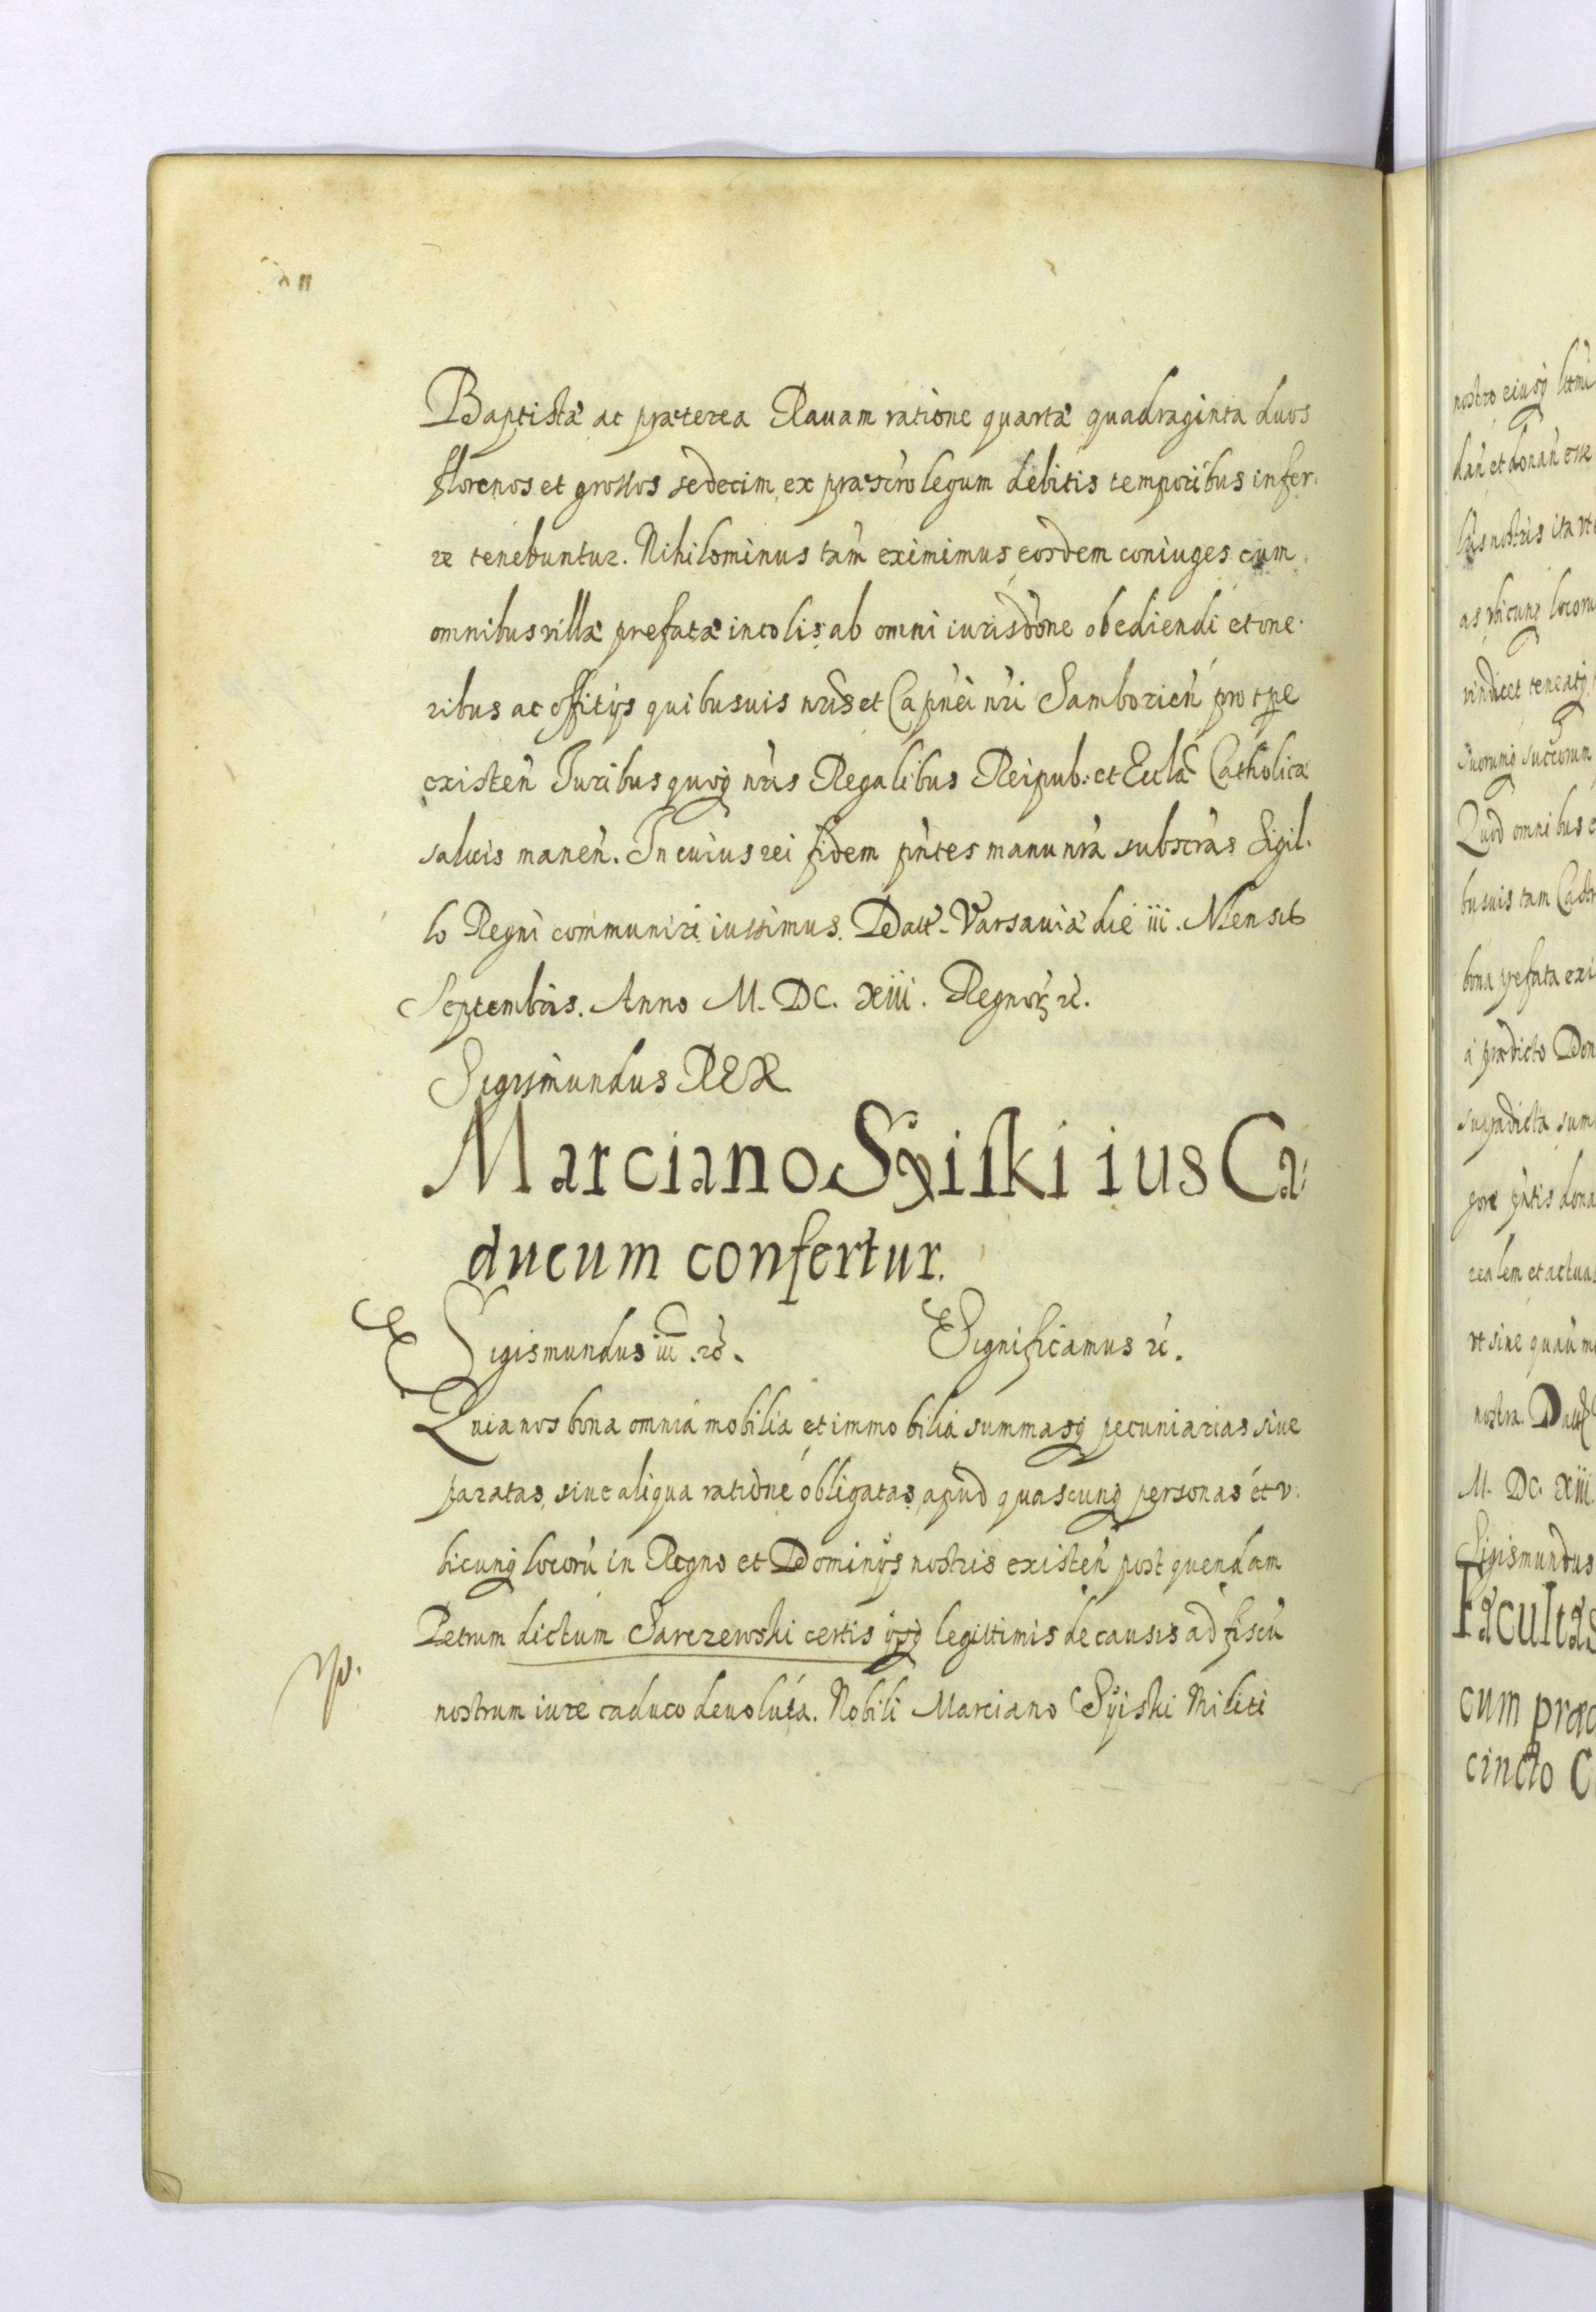 Baptistæ ac præterea Rauam ratione quartæ quadraginta duos
florenos et grossos sedecim ex præscro legum debitis temporibus infer-
re tenebuntur. Nihilominus tam̃ eximimus eosdem coniuges cum
omnibus villæ prefatæ incolis ab omni iurisdõne obediendi et one-
ribus ac offitijs quibusuis nr̃is et Capnei nr̃i Samborien̄ pro tpe
existen̄ Juribus quoq nr̃is Regalibus Reipub: et Eccla Catholicæ
saluis manen̄. In cuius rei fidem pñtes manu nr̃a subscr̃as Sigil-
lo Regni communiri iussimus. Datt. Varsauiæ die iii. Mensis
Septembris. Anno M. DC. XIII. Regnoꝝ ꝛc.
Sigismundus REX
Marciano Syiski ius Ca-
ducum confertur.
Sigismundus iii ꝛc. Significamus ꝛc.
Quia nos bona omnia mobilia et immobilia summasq pecuniarias siue
paratas, siue aliqua ratione obligatas, apud quascunq personas et v-
bicunq locorũ in Regno et Dominijs nostris existen̄ post quendam
Petrum dictum Sarczewski certis ijsq legittimis de causis ad fiscũ
nostrum iure caduco deuoluta. Nobili Marciano Syiski Militi
nostro eiusq
dañ et donañ esse
nostris ita vt
as vbicunq locoru
vindicet
suorumq
Quod omnibus
busuis tam
bona prefata exi
a prædicto Don
supradicta sum
pore pñtis dona
realem et actua
vt sine
nostra. Datt
M. DC. XIII.
Sigismundus
Facultas
cum præ
cincto C